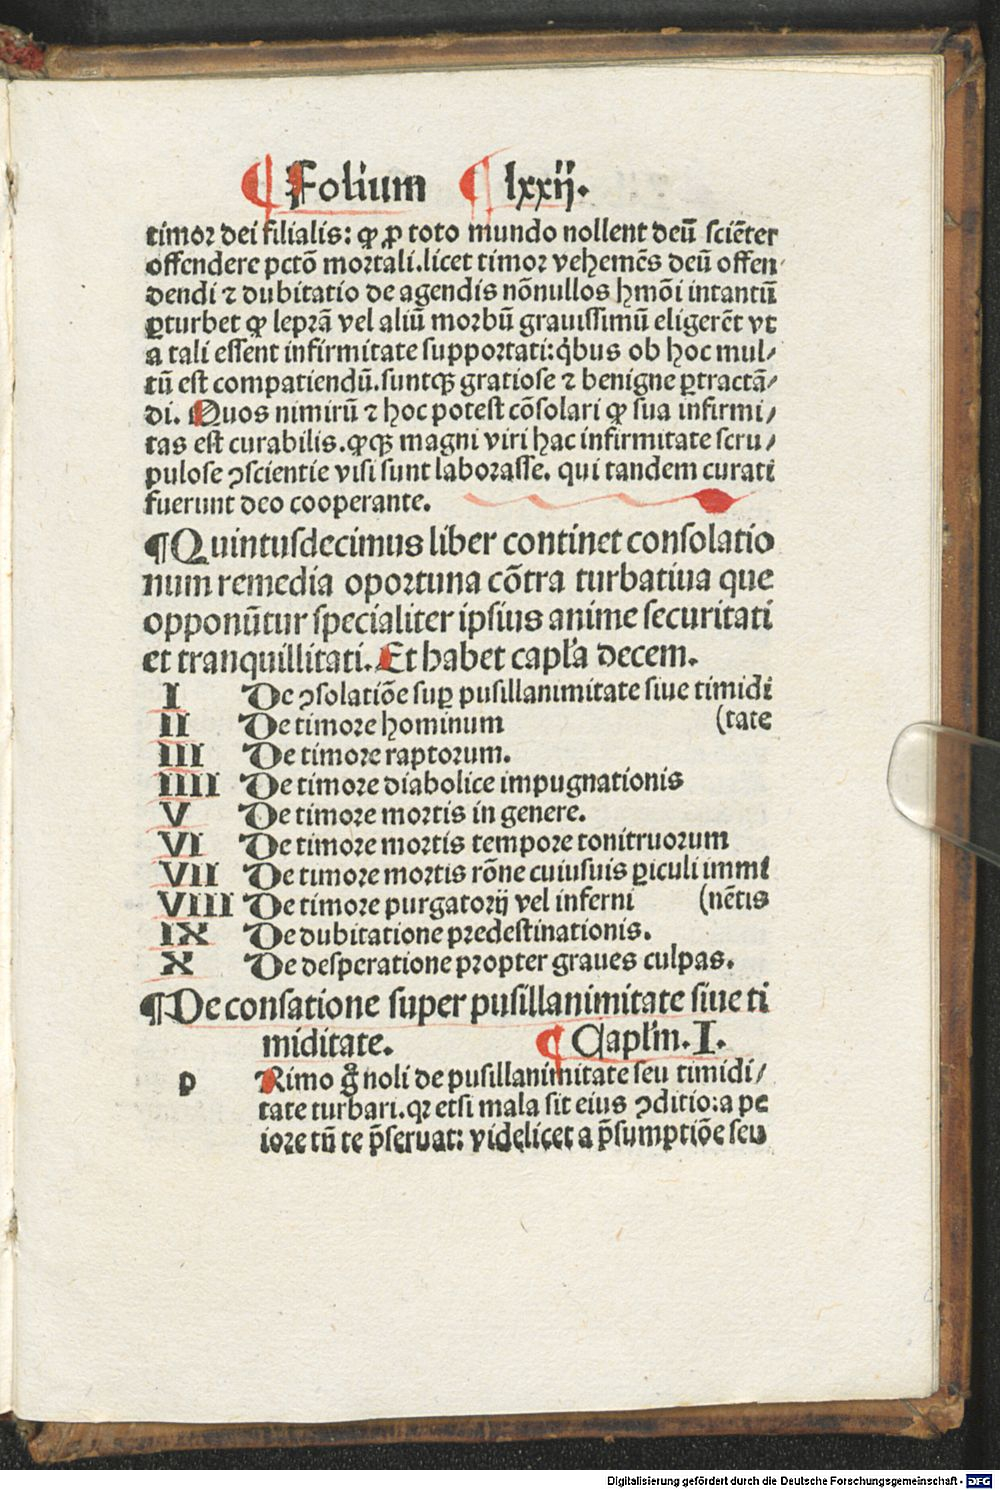 ¶ Folium ¶ lxxij.
timor dei filialis: ꝙ ꝓ toto mundo nollent deū sciēter
offendere pctō mortali. licet timor vehemēs deū offen-
dendi ⁊ dubitatio de agendis nōnullos hmōi intantū
ꝑturbet ꝙ leprā vel aliū morbū grauissimū eligerēt vt
a tali essent infirmitate supportati: qͥbus ob hoc mul/
tū est compatiendū. suntqꝫ gratiose ⁊ benigne ꝑtractā/
di. Quos nimirū ⁊ hoc potest cōsolari ꝙ sua infirmi/
tas est curabilis. ꝙqꝫ magni viri hac infirmitate scru/
pulose ꝯscientie visi sunt laborasse. qui tandem curati
fuerunt deo cooperante.
¶Quintusdecimus liber continet consolatio
num remedia oportuna cōtra turbatiua que
opponūtur specialiter ipsius anime securitati
et tranquillitati. Et habet capl'a decem.
I De ꝯsolatiōe suꝑ pusillanimitate siue timidi
II De timore hominum (tate
III De timore raptorum.
IIII De timore diabolice impugnationis
V De timore mortis in genere.
VI De timore mortis tempore tonitruorum
VII De timore mortis rōne cuiusuis ꝑiculi immi
VIII De timore purgatorij vel inferni (nētis
IX De dubitatione predestinationis.
X De desperatione propter graues culpas.
¶De consatione super pusillanimitate siue ti
miditate. ¶ Capl'm. I.
p Rimo gͦ noli de pusillanimitate seu timidi/
tate turbari. qꝛ etsi mala sit eius ꝯditio: a pe
iore tn̄ te p̄seruat: videlicet a p̄sumptiōe seu
Digitalisierung gefördert durch die Deutsche Forschungsgemeinschaft - DFG